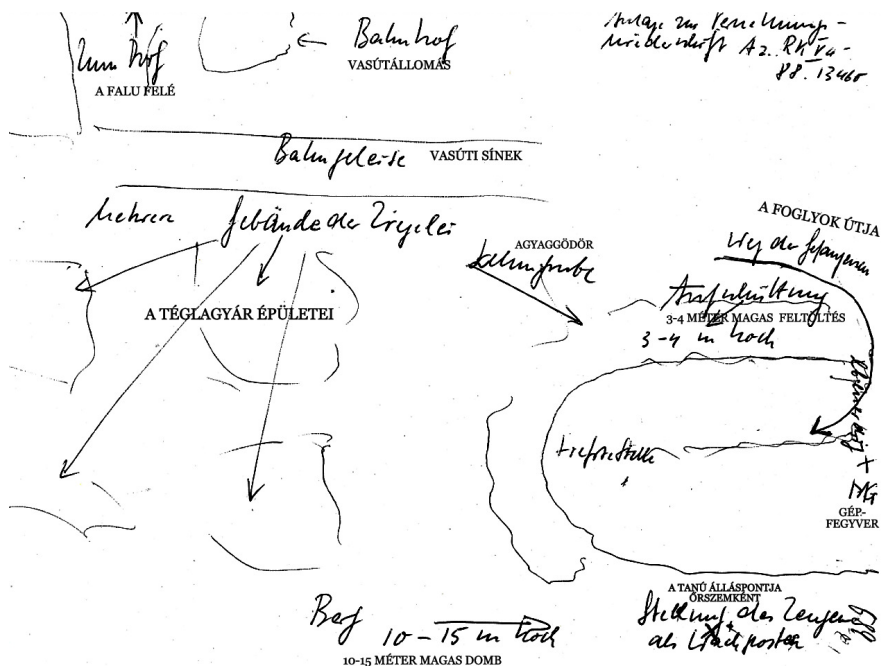 Zum Hof
A FALU FELÉ
← Bahnhof
VASÚTÁLLOMÁS
Anlage zur Vernehmungs-
niederschrift Az. RK Va-
88.13460
Bahngeleise VASÚTI SÍNEK
Mehrere Gebäude der Ziegelei
A TÉGLAGYÁR ÉPÜLETEI
AGYAGGÖDÖR
Lehmgrube
A FOGLYOK ÚTJA
Weg der Gefangenen
Aufschüttung
3-4 MÉTER MAGAS FELTÖLTÉS
3-4 m hoch
tiefste Stelle
+ MG
GÉP-
FEGYVER
Berg 10-15 m hoch
10-15 MÉTER MAGAS DOMB
A TANÚ ÁLLÁSPONTJA
ŐRSZEMKÉNT
Stellung des Zeugen
als Wachposten